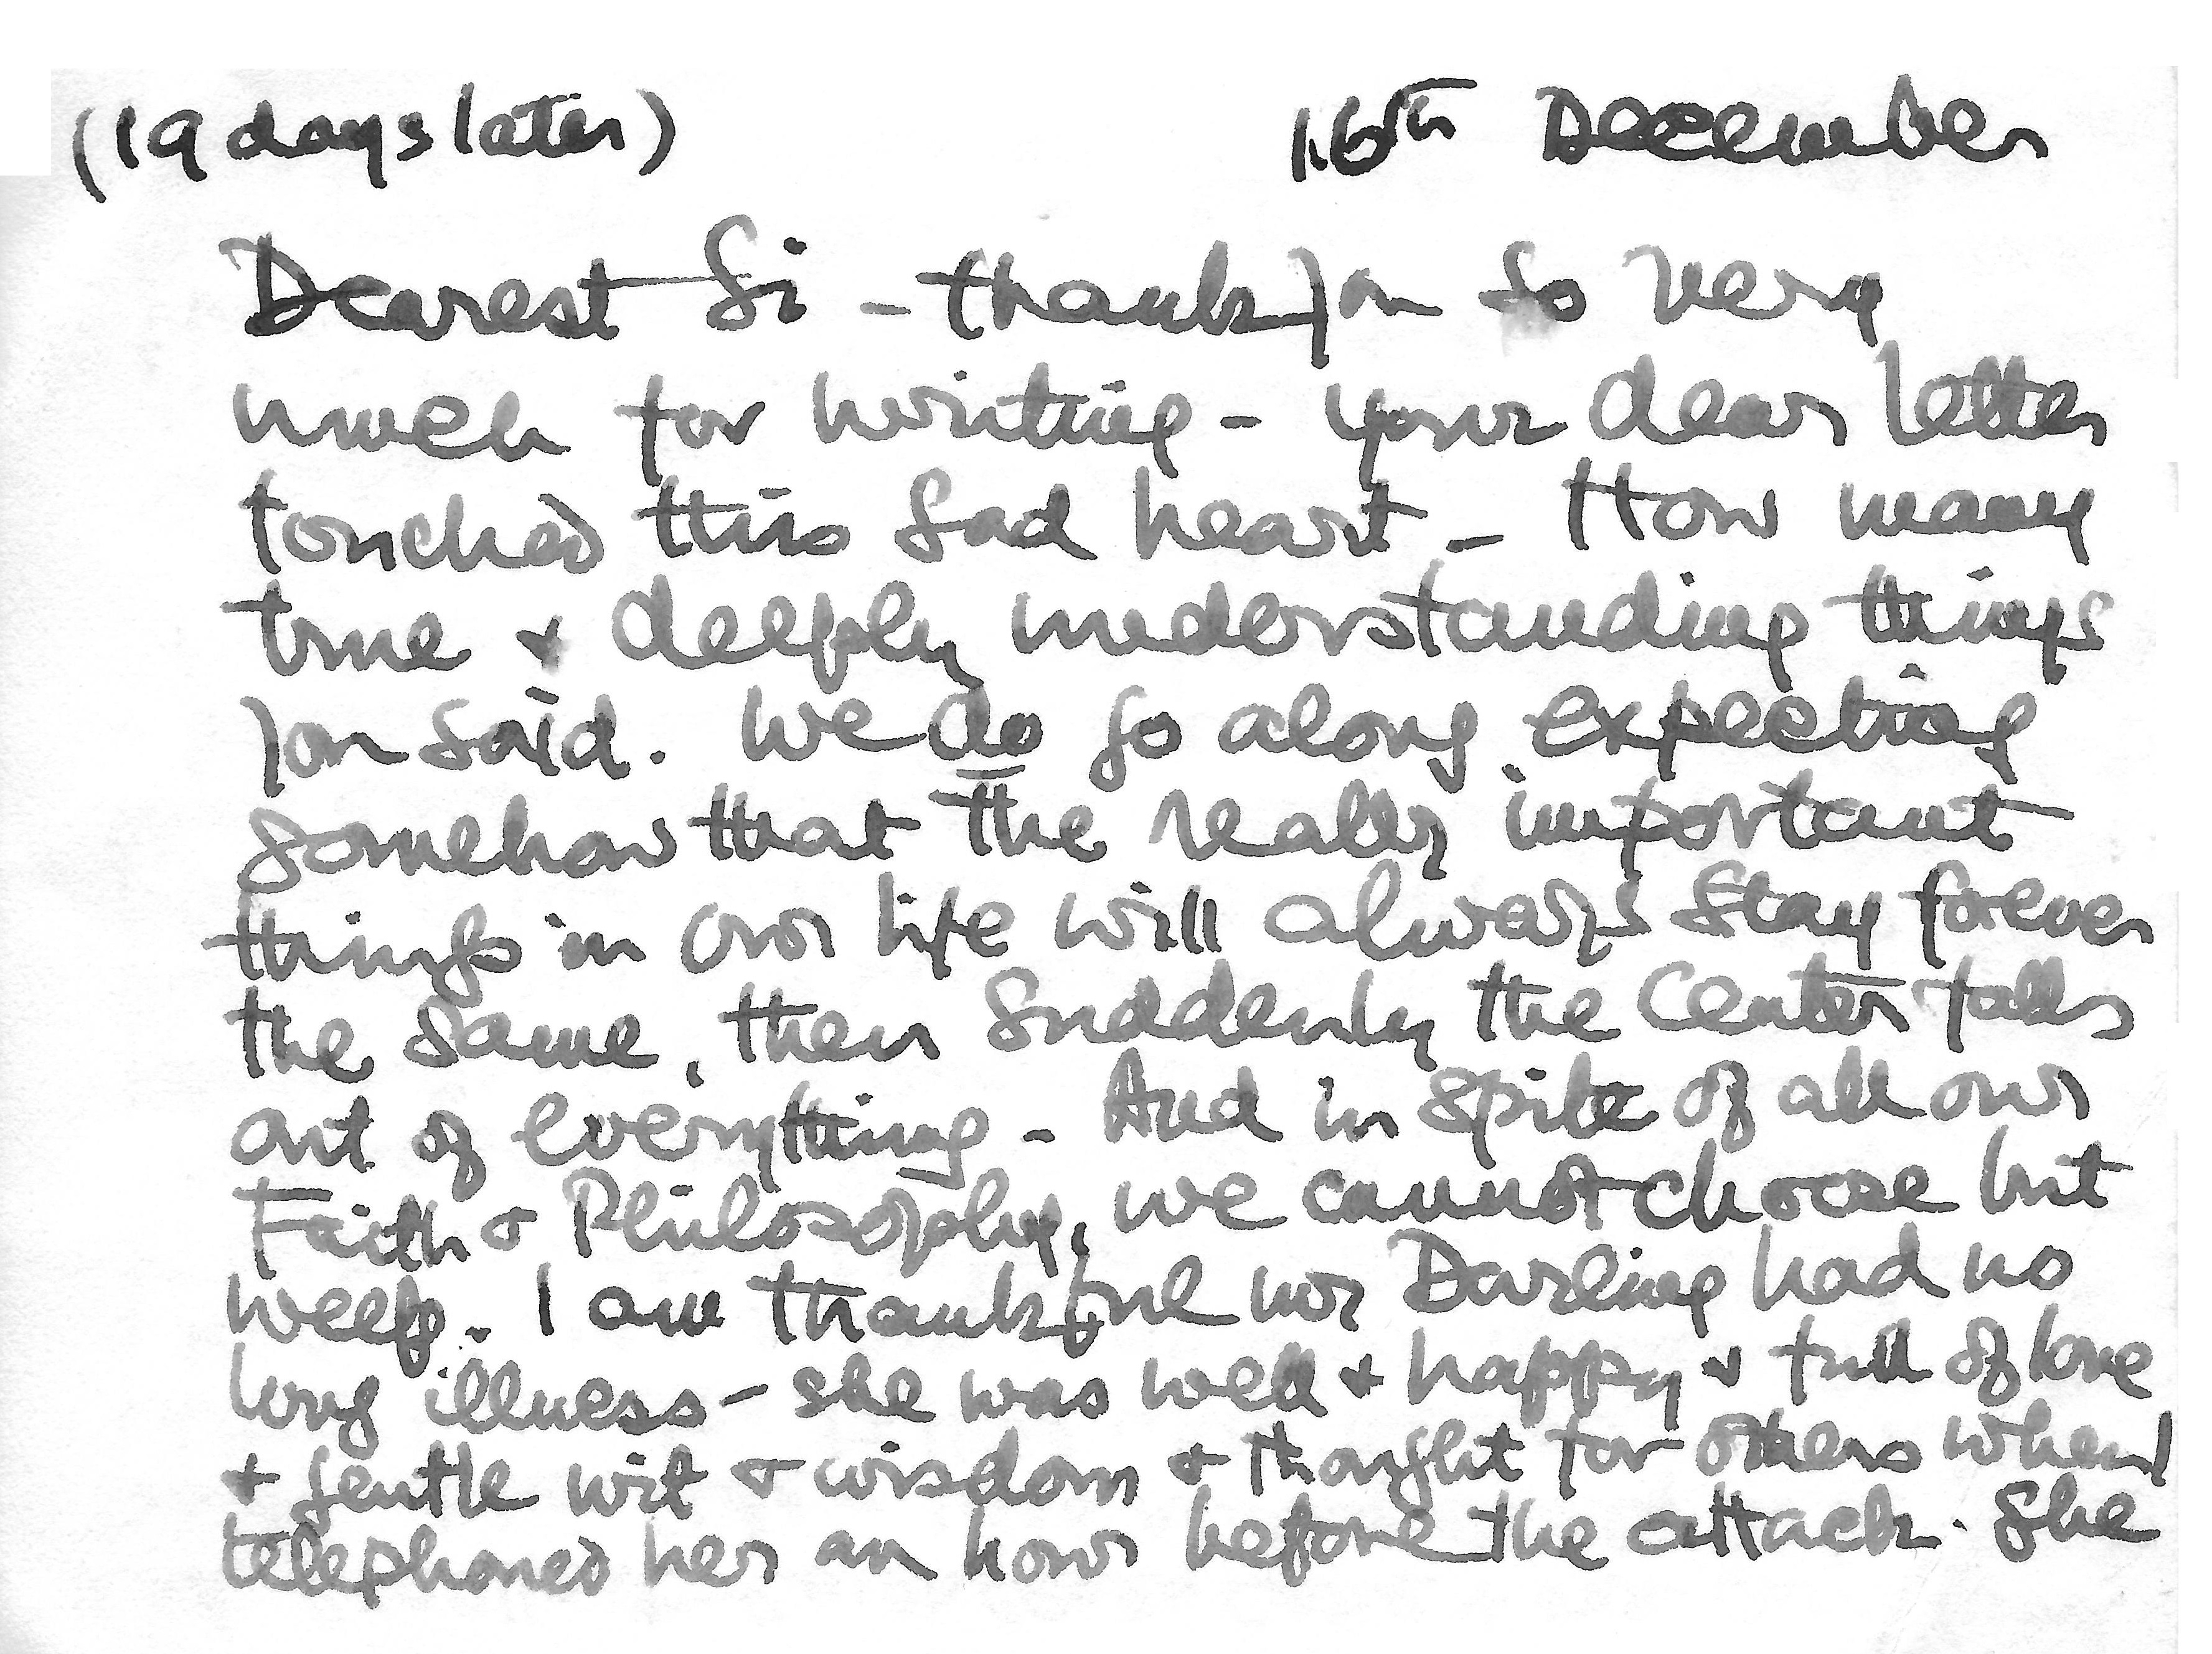 (19 days later) 16th December
Dearest Si - thank you so very
much for writing - your dear letter
touched this sad heart - How many
true & deeply understanding things
you said. We do go along expecting
somehow that the really important
things in our life will always stay forever
the same, then suddenly the Center falls
out of everything - And in spite of all our
Faith & Philosophy, we cannot choose but
weep. I am thankful our Darling had no
long illness - she was well & happy & full of love
& gentle wit & wisdom & thought for others when I
telephoned her an hour before the attack. She